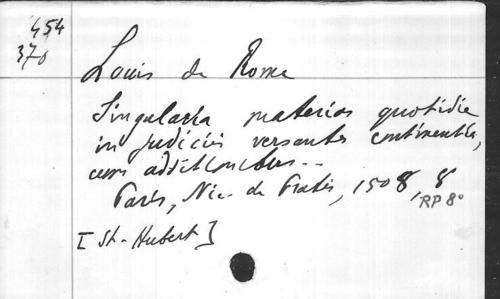 454
370
Louis de Rome
Singularia materias quotidie
in judiciis versantes continentia,
cum additionibus..
Paris, Nic. de Pratis, 1508, 8
RP 8°
[St-Hubert]